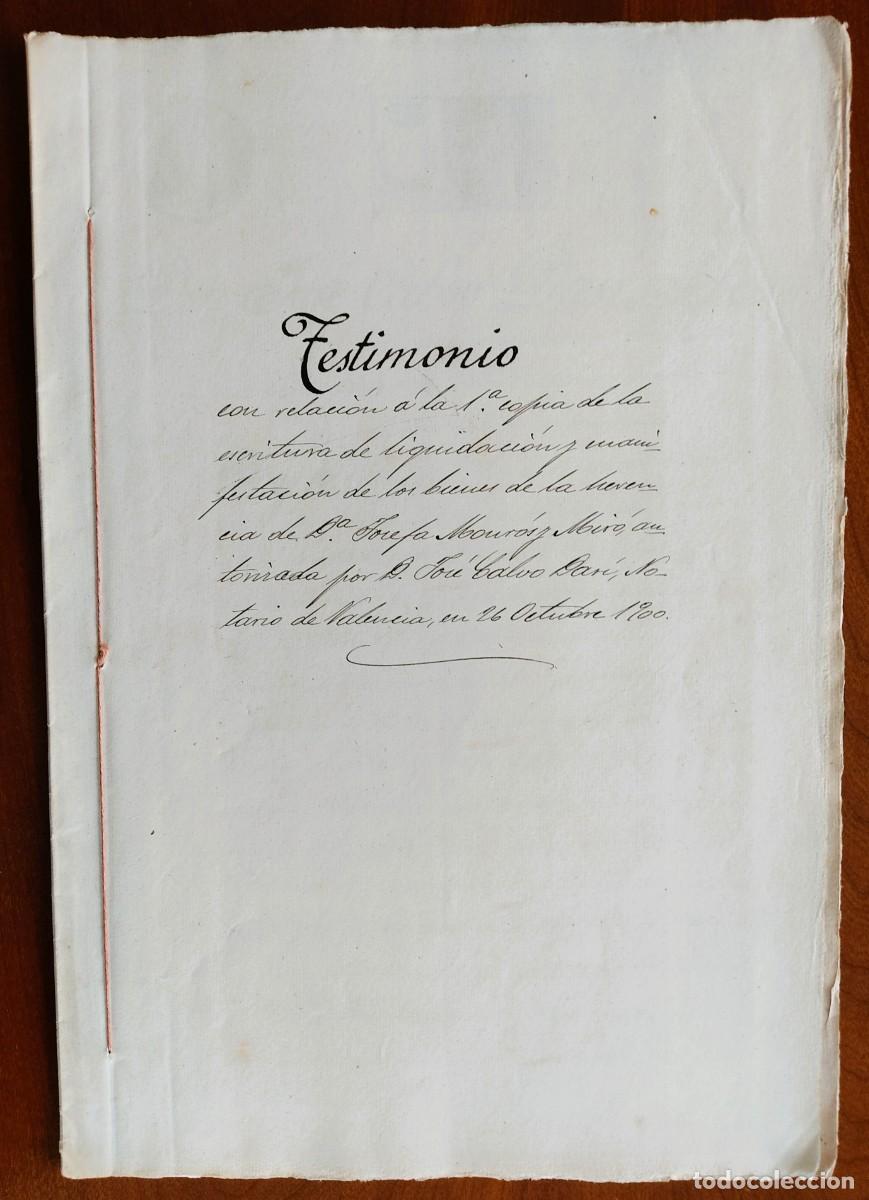 Testimonio
con relación á la 1.ª copia de la
escritura de liquidación y mani-
festación de los bienes de la heren-
cia de D.ª Josefa Monrós y Miró, au-
torizada por D. José Calvo Darí, No-
tario de Valencia, en 26 Octubre 1900.
todocoleccion